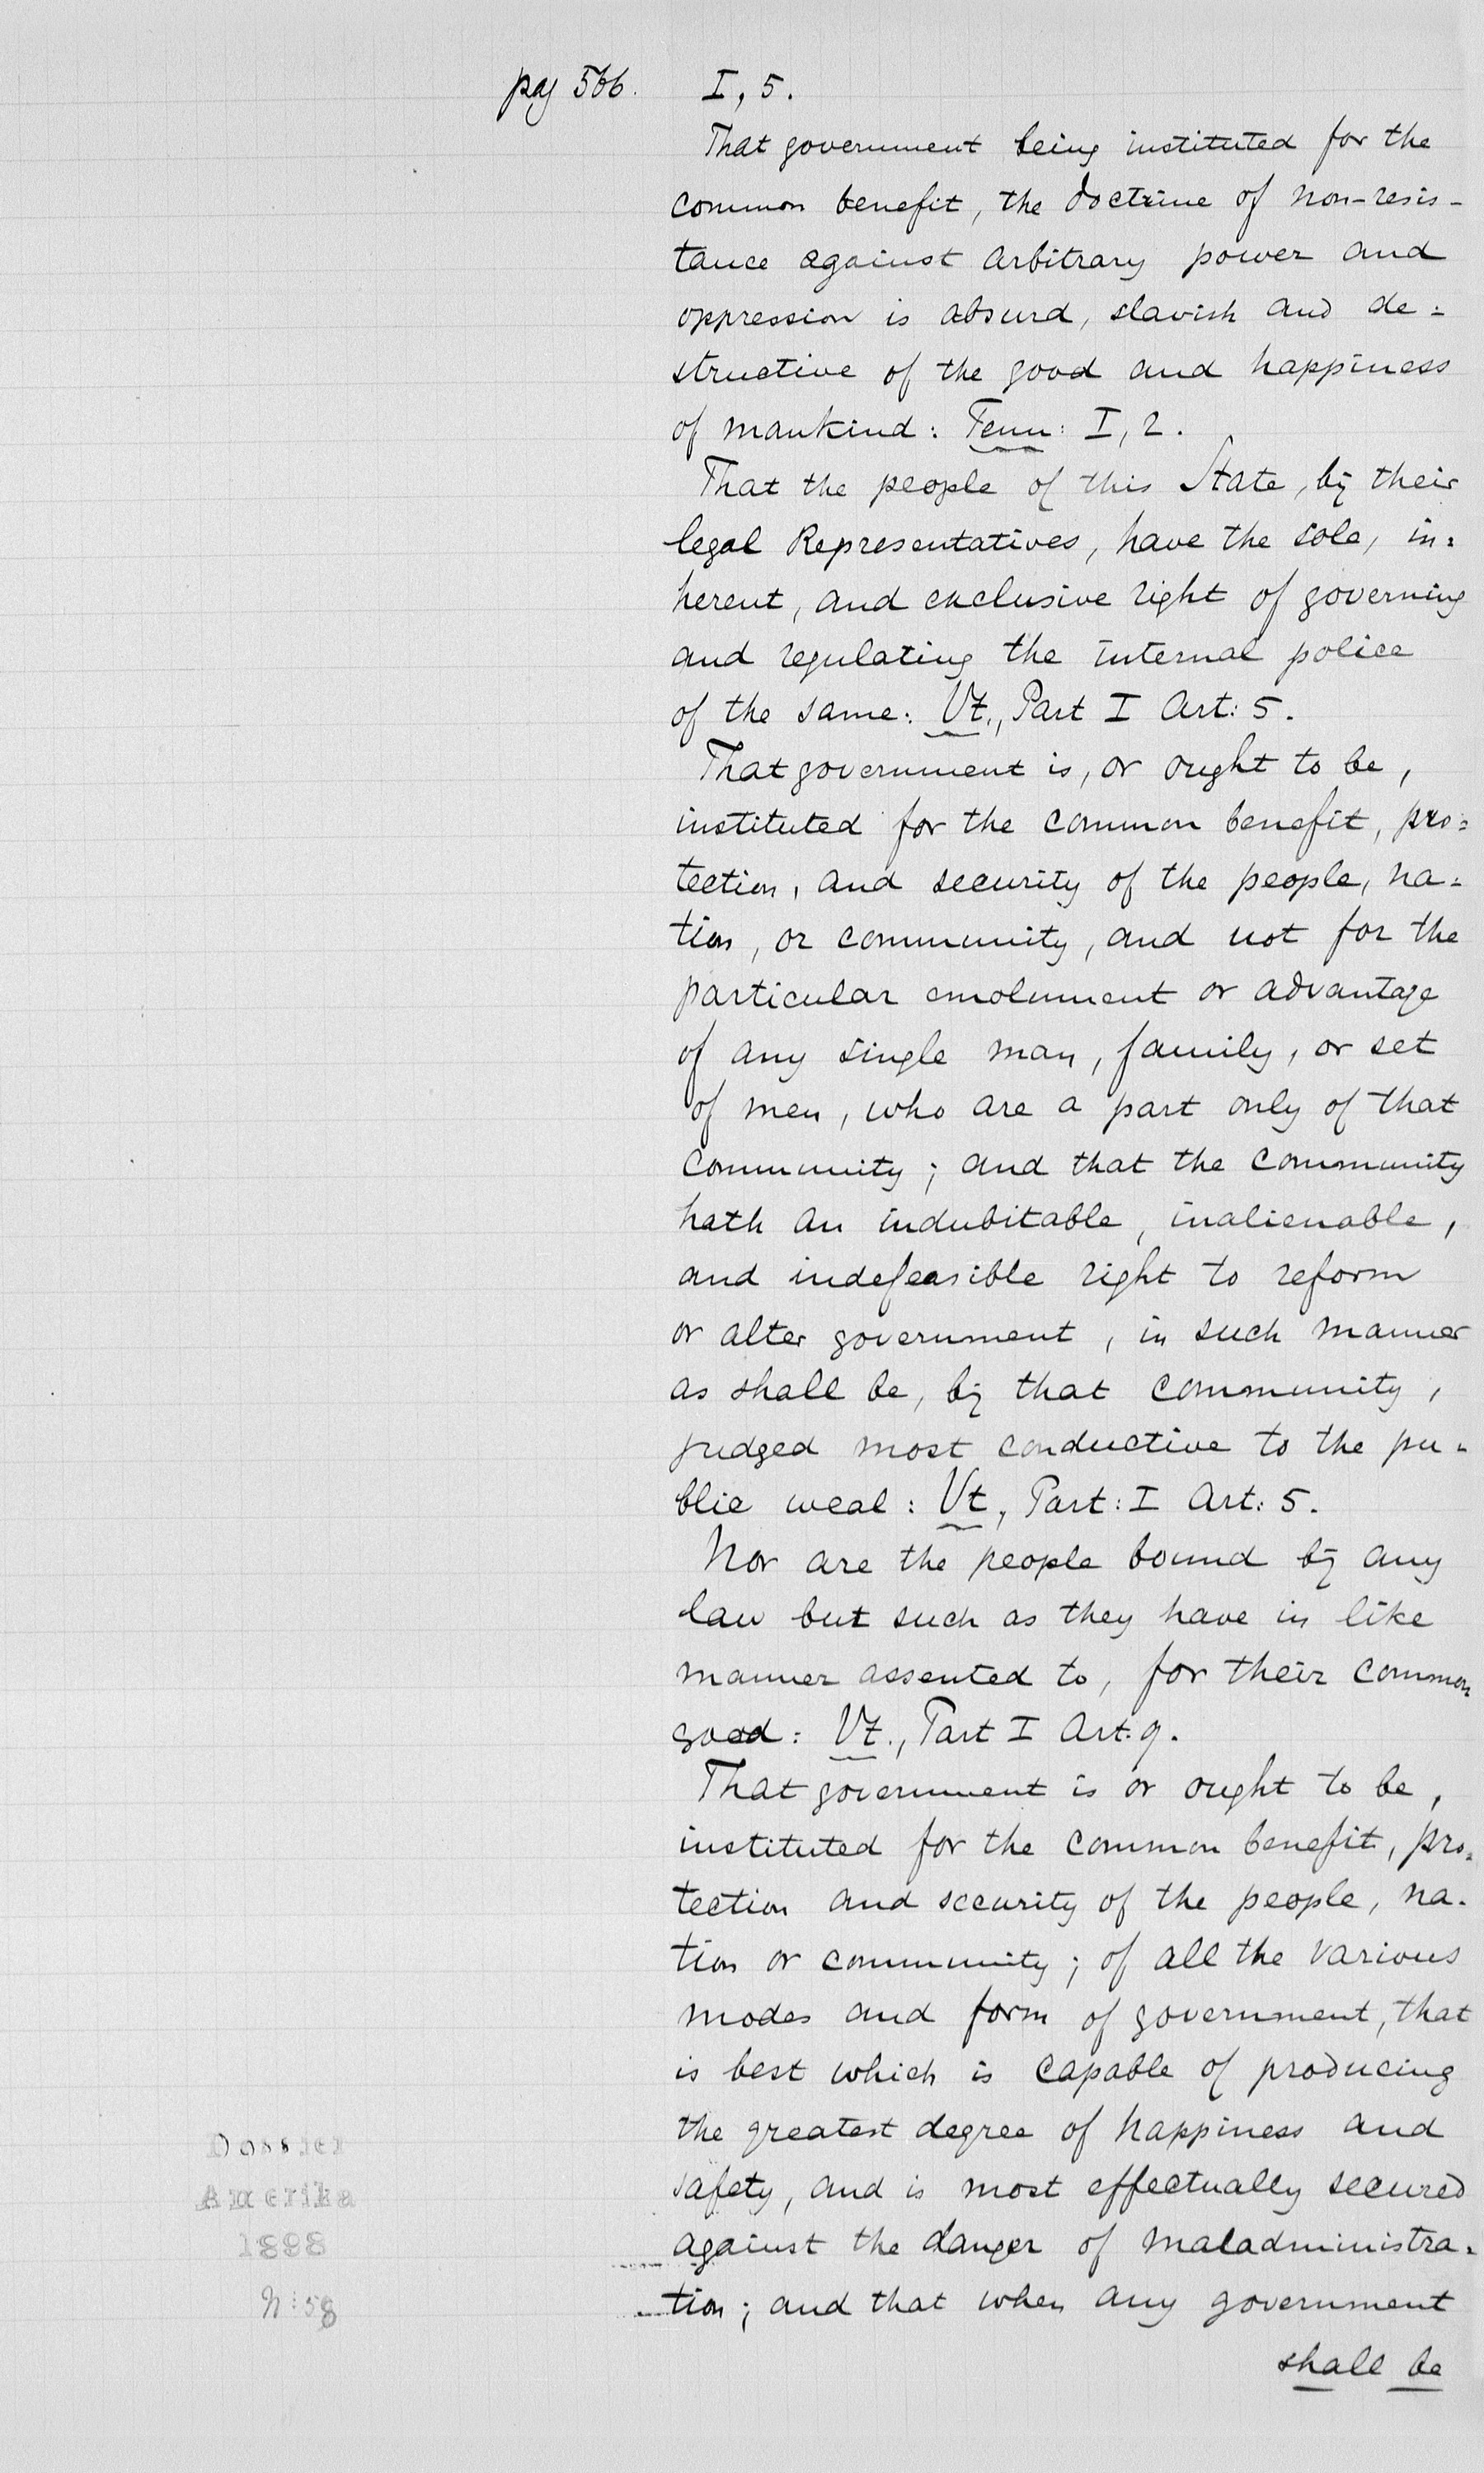 pag 566. I, 5.
That government being instituted for the
common benefit, the doctrine of non-resis-
tance against arbitrary power and
oppression is absurd, slavish and de=
structive of the good and happiness
of mankind: Tenn: I, 2.
That the people of this State, by their
legal Representatives, have the sole, in=
herent, and exclusive right of governing
and regulating the internal police
of the same: Vt., Part I Art: 5.
That government is, or ought to be,
instituted for the common benefit, pro=
tection, and security of the people, na=
tion, or community, and not for the
particular emolument or advantage
of any single man, family, or set
of men, who are a part only of that
community; and that the community
hath an indubitable, inalienable,
and indefeasible right to reform
or alter government, in such manner
as shall be, by that community,
judged most conductive to the pu=
blic weal: Vt, Part: I Art: 5.
Nor are the people bound by any
law but such as they have in like
manner assented to, for their common
good: Vt., Part I Art. 9.
That government is or ought to be,
instituted for the common benefit, pro=
tection and security of the people, na=
tion or community; of all the various
modes and form of government, that
is best which is capable of producing
the greatest degree of happiness and
safety, and is most effectually secured
against the danger of maladministra=
tion; and that when any government
shall be
Dossier
Amerika
1898
N: 58